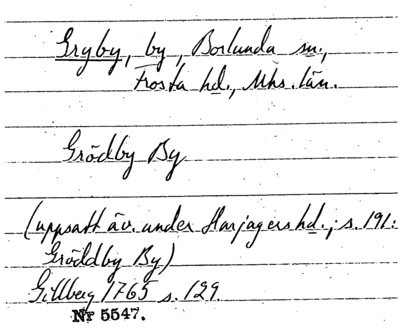 Gryby, by, Borlunda sn.,
Frosta hd., Mhs. län.
Grödby By
(uppsatt äv. under Harjagers hd.; s. 191:
Gröddby By)
Gillberg 1765 s. 129.
Nr 5547.